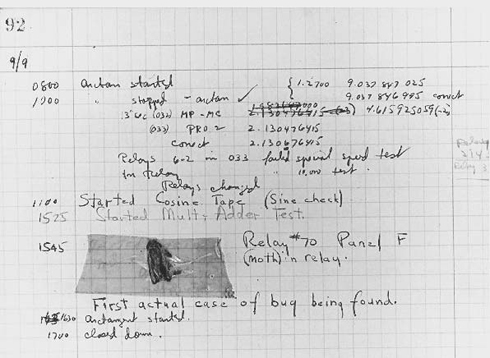 92
9/9
0800 arctan started
1000 " stopped - arctan ✓ { 1.2700 9.037 847 025
9.037 846 995 correct
13"UC (032) MP - MC 4.615925059(-2)
(033) PRO 2 2.130476415
correct 2.130676415
Relays 6-2 in 033 failed special speed test
in Relay " 10.000 test.
Relays changed
1100 Started Cosine Tape (Sine check)
1525 Started Mult+Adder Test.
1545 Relay #70 Panel F
(moth) in relay.
First actual case of bug being found.
1630 arctangent started.
1700 closed down.